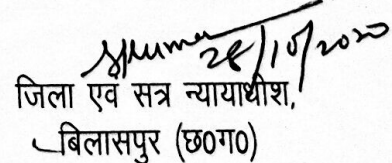 28/10/2020
जिला एवं सत्र न्यायाधीश,
बिलासपुर (छ0ग0)